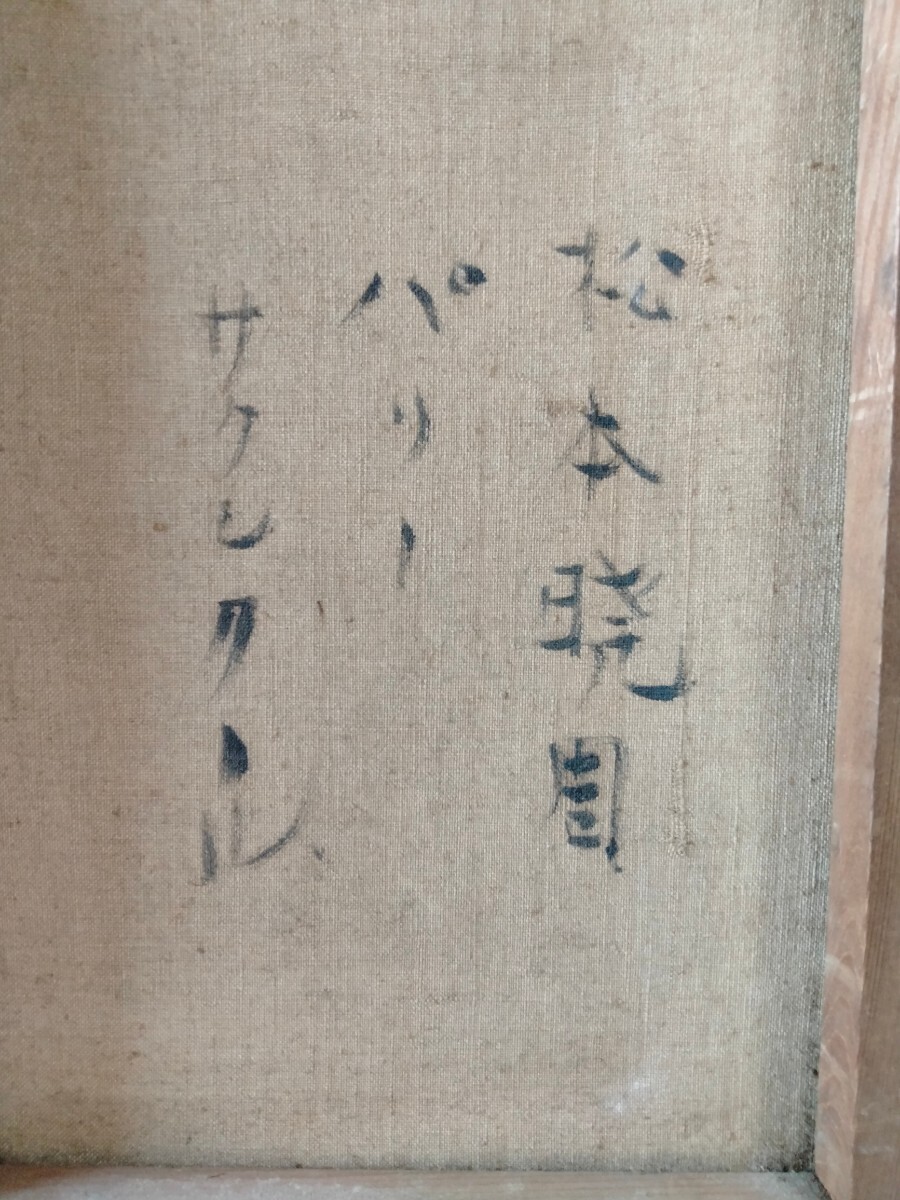 松本暁圁
パリー
サクレクール